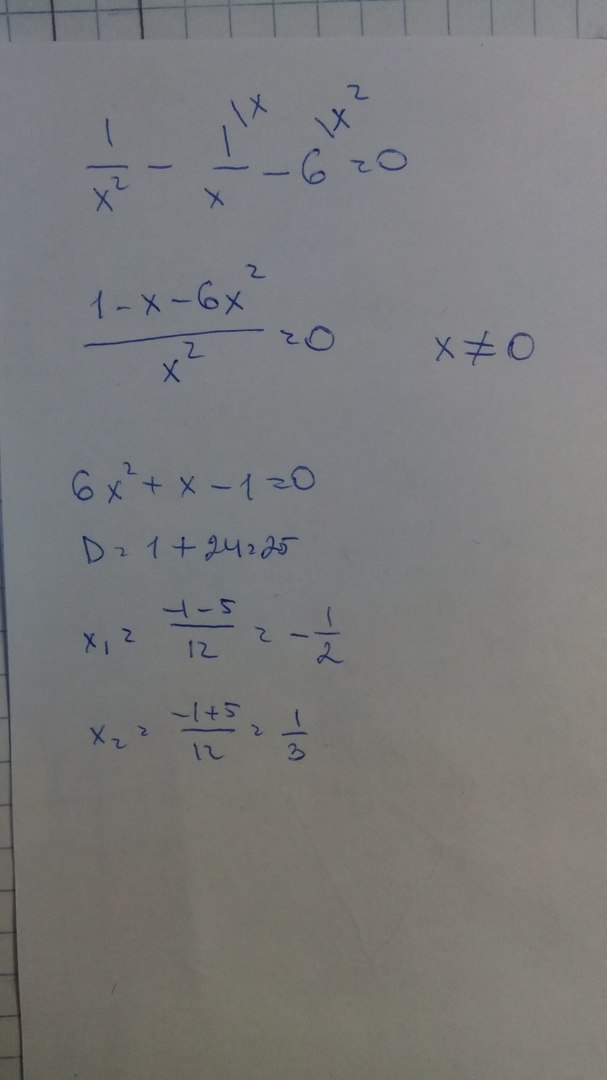 1/x² - 1/x \x - 6 \x² = 0
(1-x-6x²)/x² = 0    x ≠ 0
6x² + x - 1 = 0
D = 1 + 24 = 25
x₁ = (-1-5)/12 = -1/2
x₂ = (-1+5)/12 = 1/3